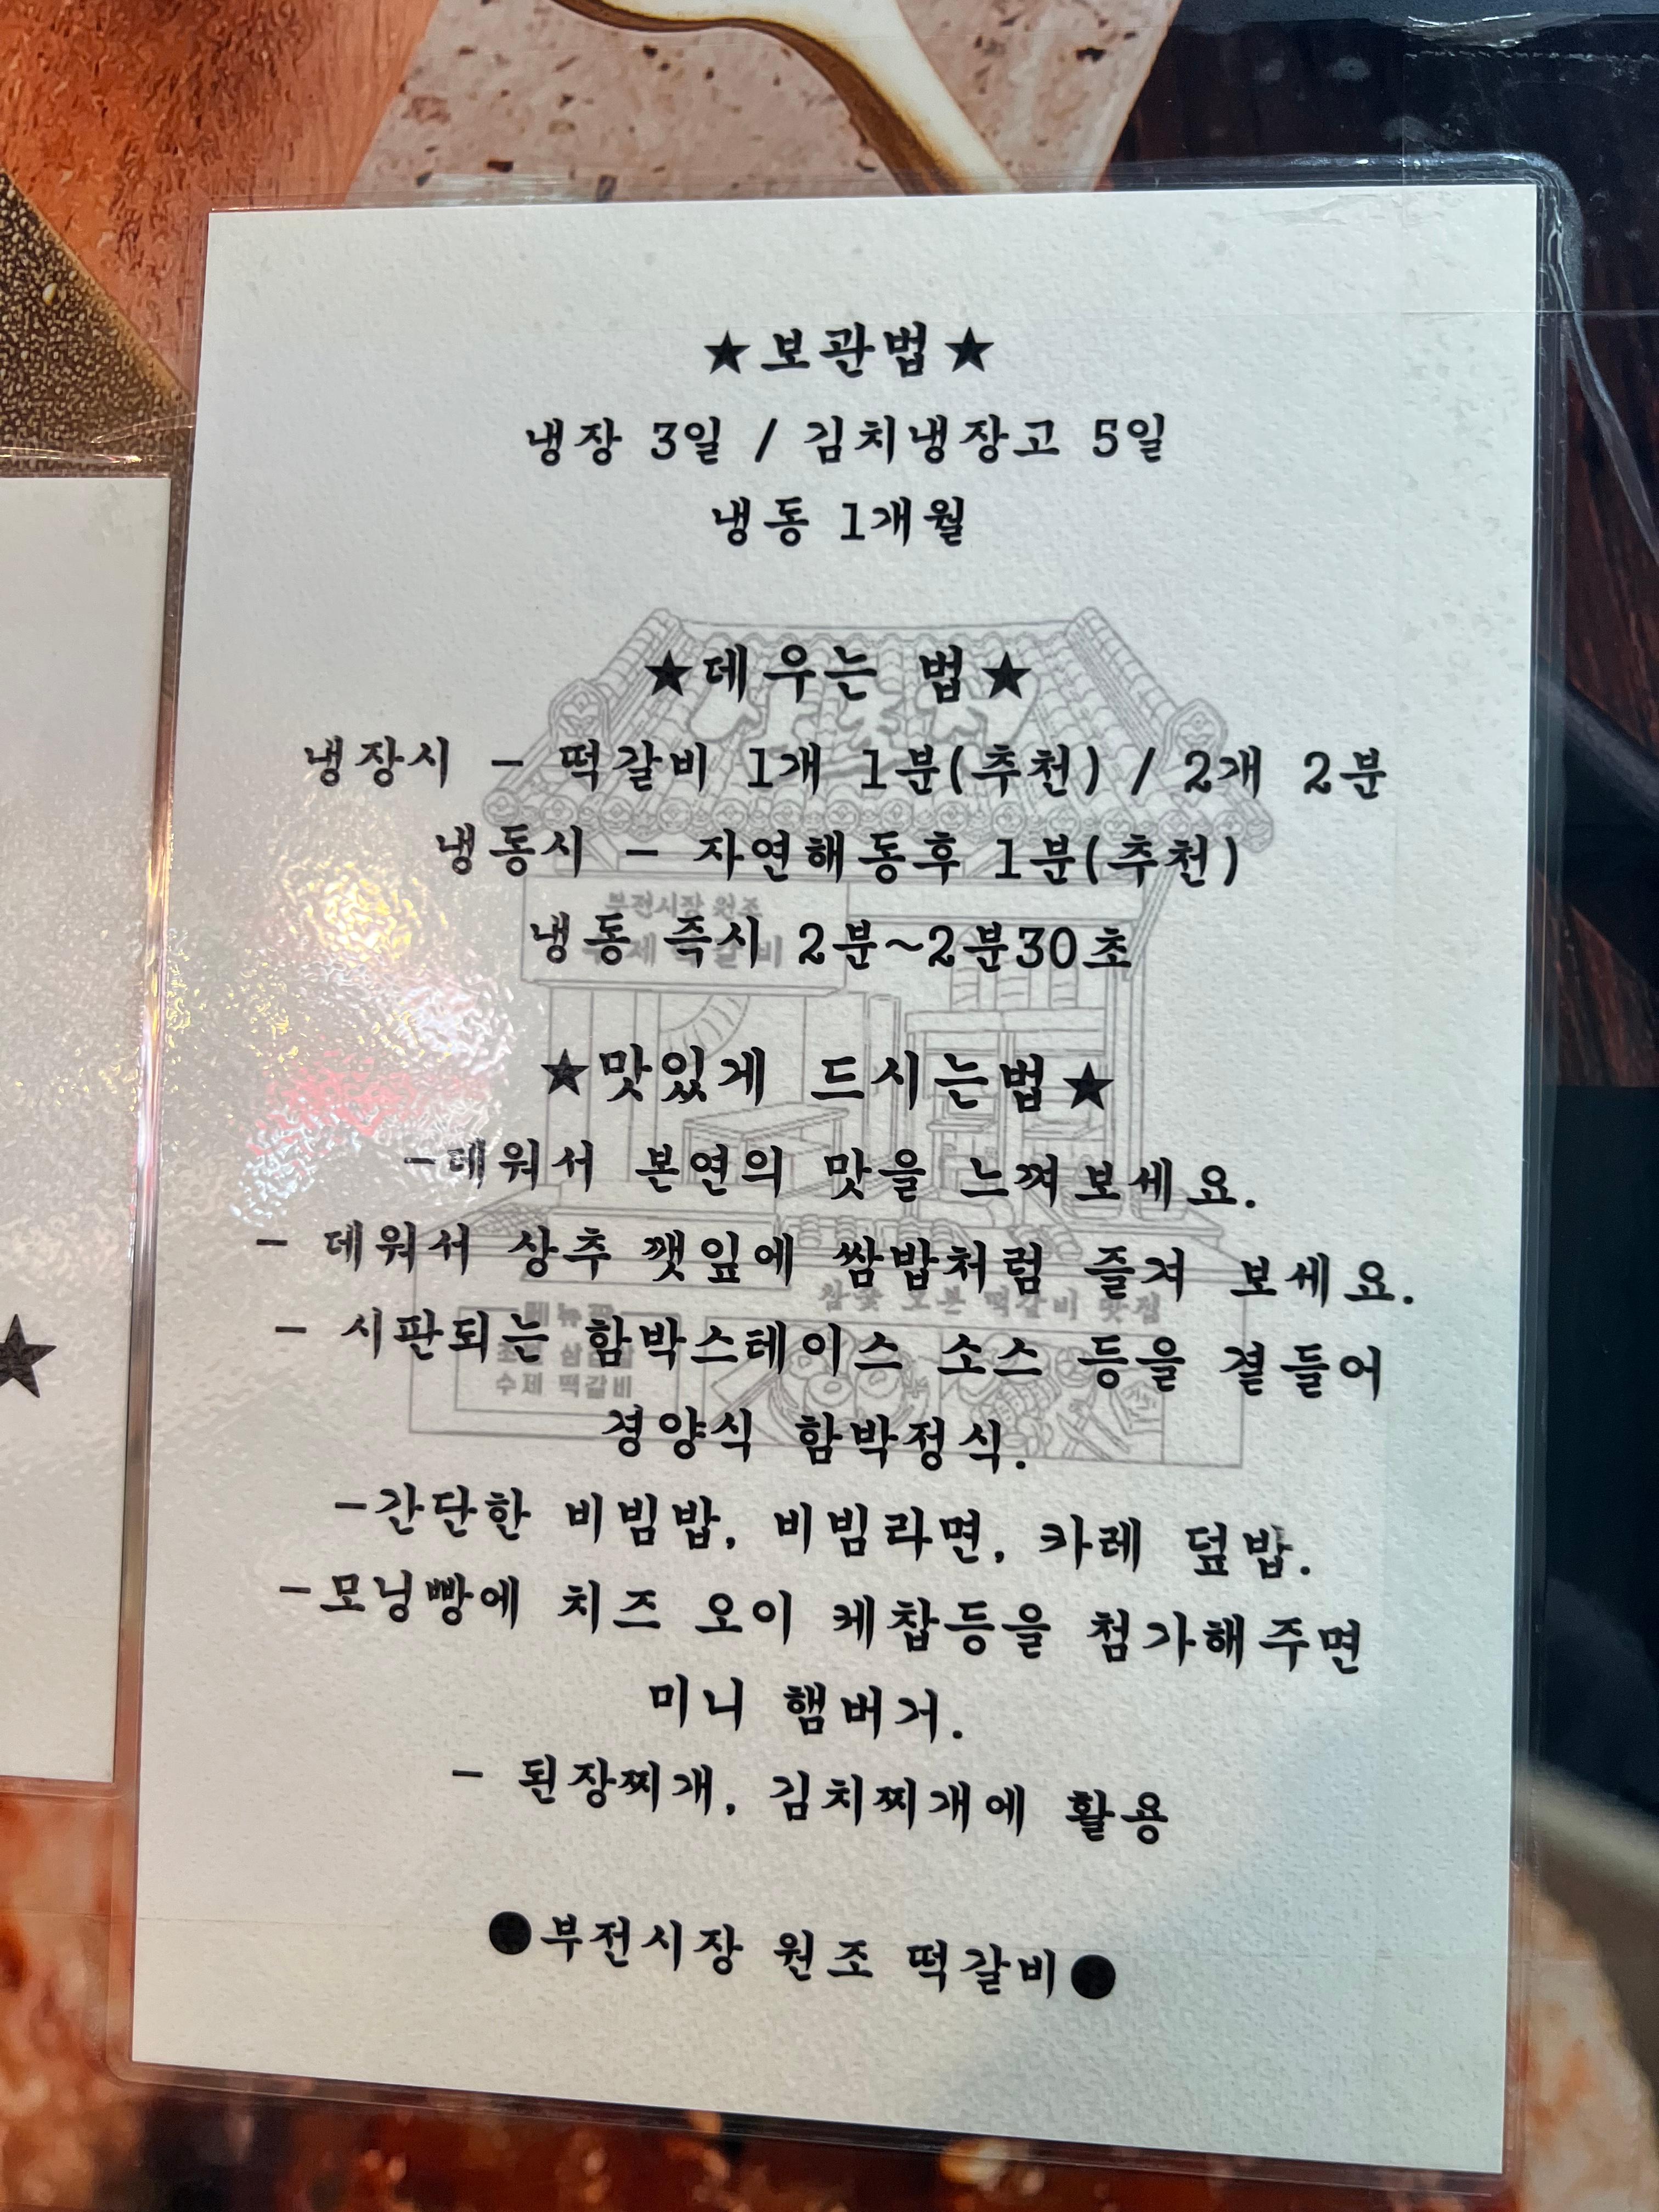 ★보관법★
냉장 3일 / 김치냉장고 5일
냉동 1개월
★데우는 법★
냉장시 - 떡갈비 1개 1분(추천) / 2개 2분
냉동시 - 자연해동후 1분(추천)
부전시장 원조
냉동 즉시 2분~2분30초
★맛있게 드시는법★
-데워서 본연의 맛을 느껴보세요.
- 데워서 상추 깻잎에 쌈밥처럼 즐겨 보세요.
- 시판되는 함박스테이스 소스 등을 곁들어
수제 떡갈비
경양식 함박정식.
-간단한 비빔밥, 비빔라면, 카레 덮밥.
-모닝빵에 치즈 오이 케찹등을 첨가해주면
미니 햄버거.
- 된장찌개, 김치찌개에 활용
●부전시장 원조 떡갈비●
★